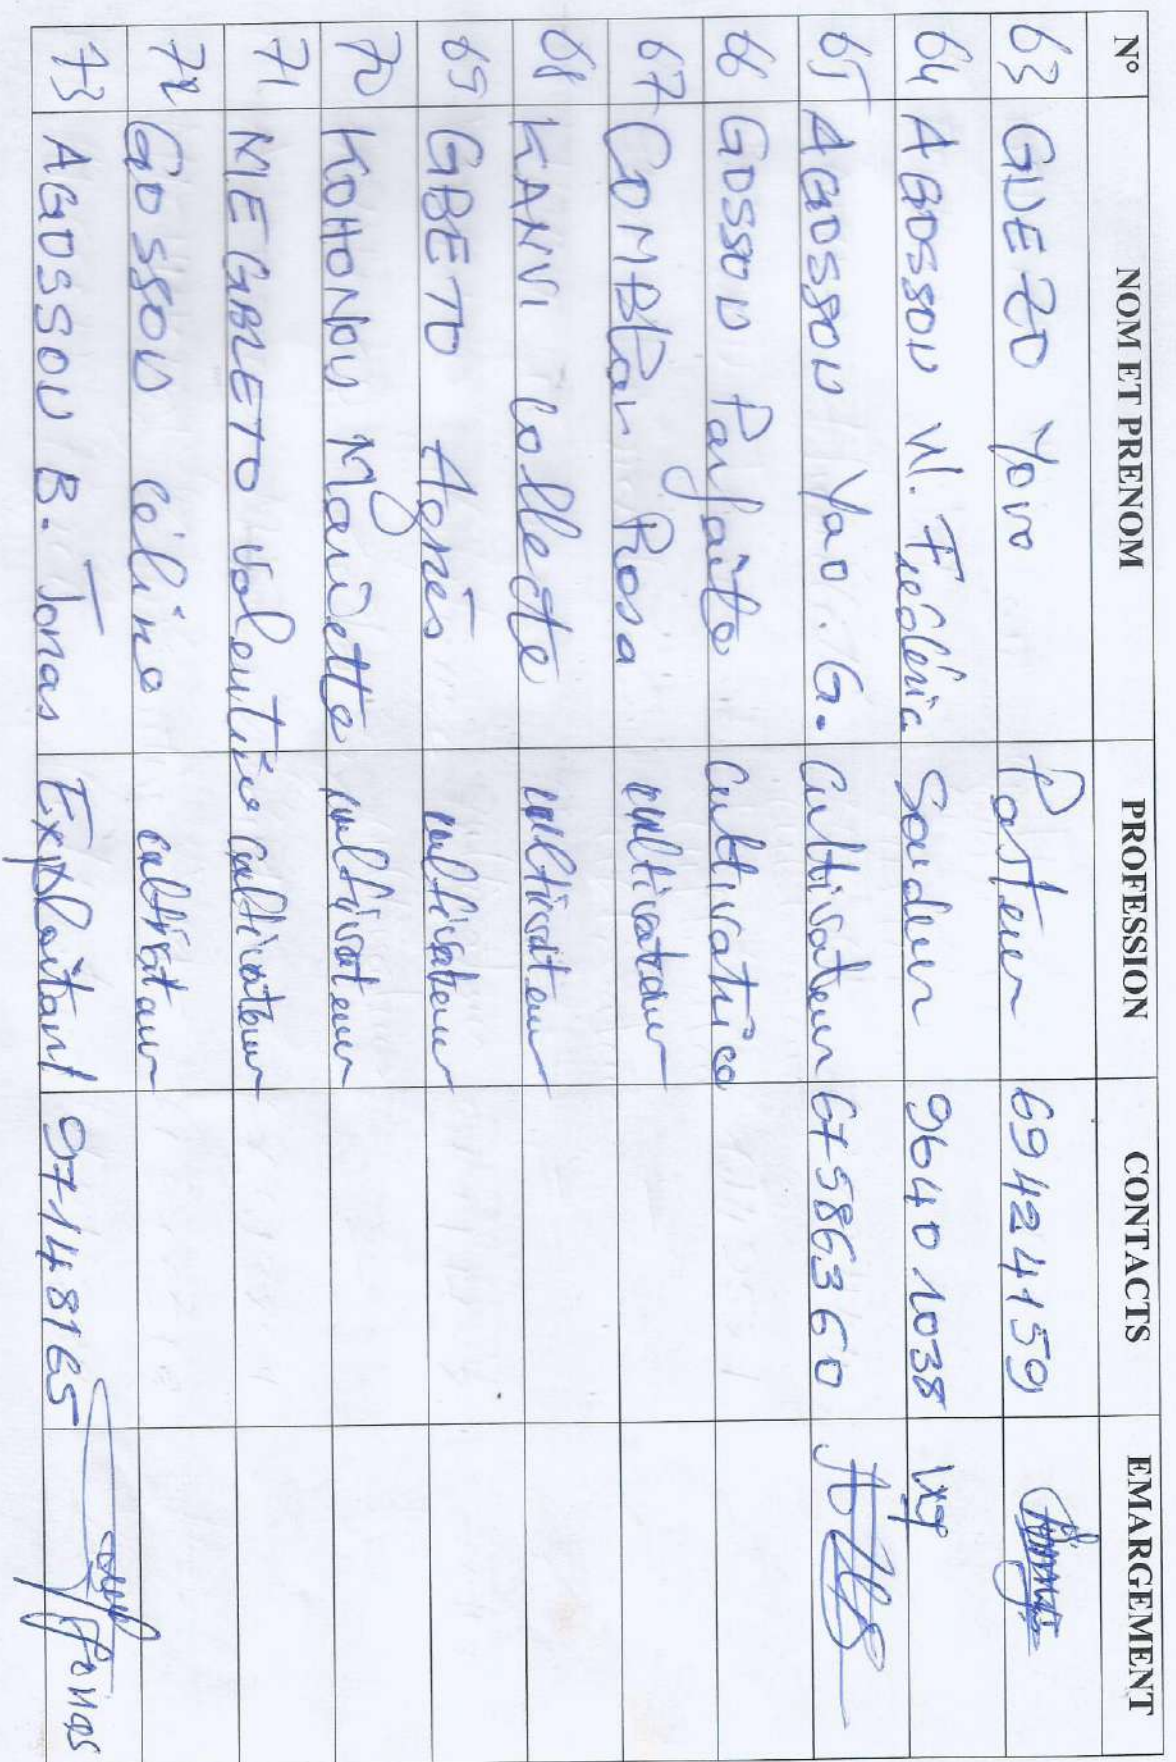 N° NOM ET PRENOM PROFESSION CONTACTS EMARGEMENT
63 GUEZO Yovo Pasteur 69424159
64 AGOSSOU W. Fréderic Soudeur 96401038
65 AGOSSOU Yao. G. Cultivateur 67586360
66 GOSSOU Parfaite Cultivatrice
67 COMBlan Rosa cultivateur
68 KANVI Collecte cultivateur
69 GBETO Agnès cultivateur
70 KOHONOU Mariette cultivateur
71 MEGBLETO Valentine cultivateur
72 GOSSOU céline cultivateur
73 AGOSSOU B. Jonas Exploitant 97148165 Jonas